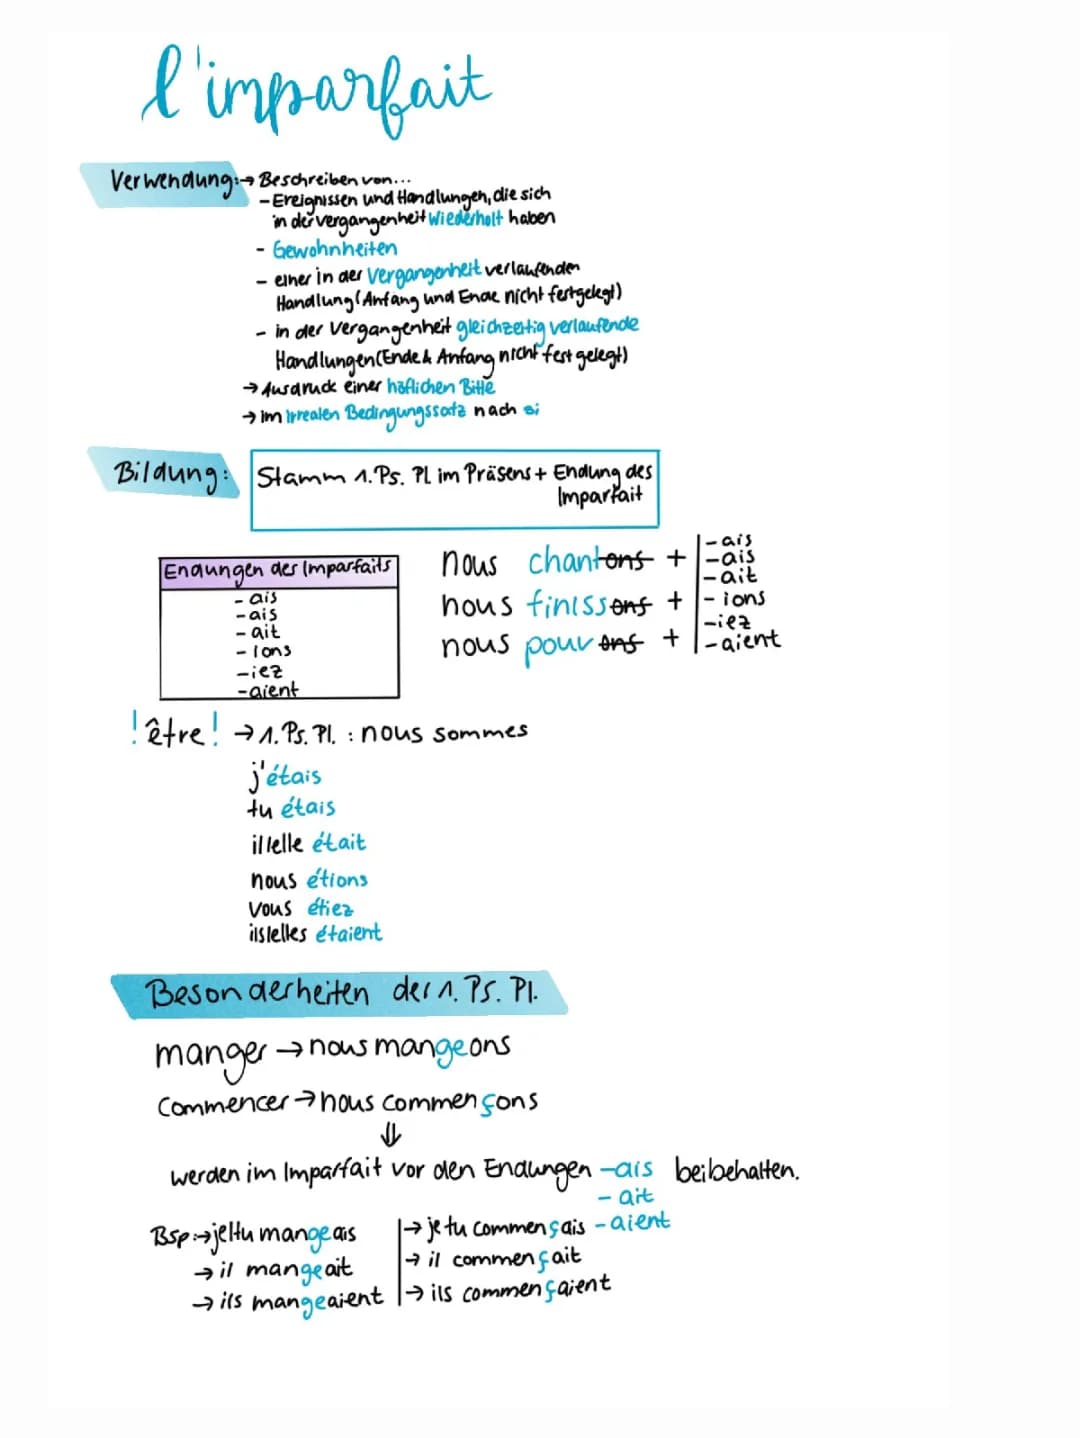 l'imparfait
Verwendung:→ Beschreiben von...
- Ereignissen und Handlungen, die sich
in der vergangenheit wiederholt haben
- Gewohnheiten
- einer in der Vergangenheit verlaufenden
Handlung (Anfang und Ende nicht festgelegt)
- in der Vergangenheit gleichzeitig verlaufende
Handlungen (Ende & Anfang nicht fest gelegt)
→ Ausdruck einer höflichen Bitte
→ im irrealen Bedingungssatz nach si
Bildung: Stamm 1. Ps. Pl. im Präsens + Endung des
Imparfait
Endungen des Imparfaits
- ais
- ais
- ait
- ions
- iez
- aient
nous chantons +
nous finissons +
nous pouvons +
- ais
- ais
- ait
- ions
- iez
- aient
! être! → 1. Ps. Pl. : nous sommes
j'étais
tu étais
il/elle était
nous étions
vous étiez
ils/elles étaient
Besonderheiten der 1. Ps. Pl.
manger → nous mangeons
Commencer → nous commençons
⇓
werden im Imparfait vor den Endungen -ais beibehalten.
- ait
- aient
Bsp:→ je/tu mangeais
→ il mangeait
→ ils mangeaient
→ je tu commençais
→ il commençait
→ ils commençaient